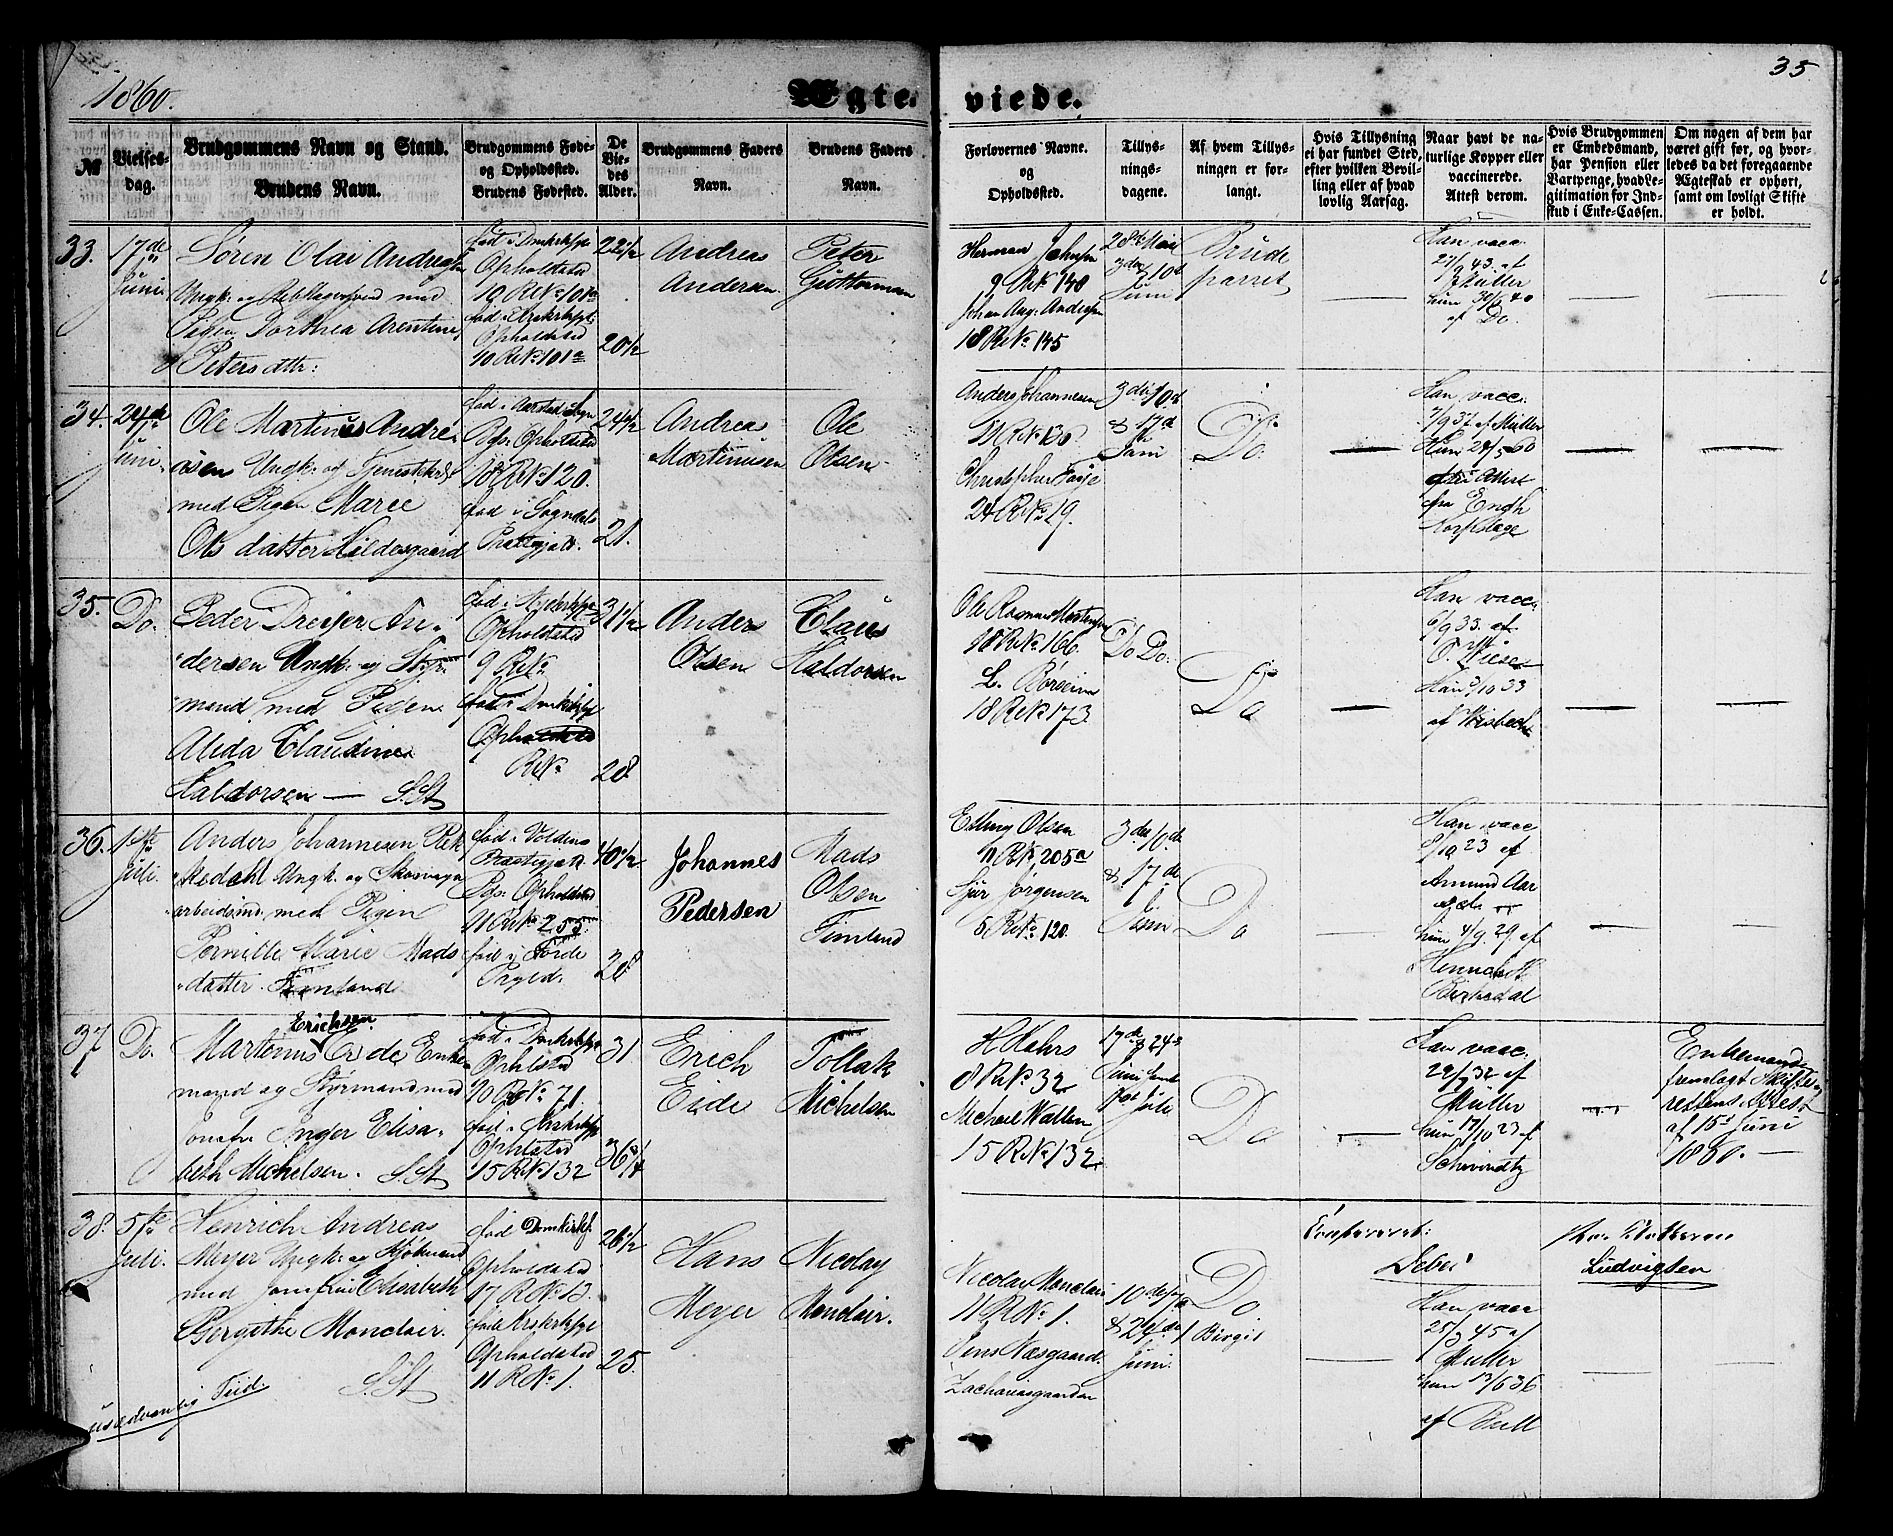 1860.
Ægte-
viede.
35
№
Vielses-
dag.
Brudgommens Navn og Stand.
Brudens Navn.
Brudgommens Føde-
og Opholdssted.
Brudens Fødested.
De
Vie-
des
Alder.
Brudgommens Faders
Navn.
Brudens Faders
Navn.
Forlovernes Navne.
og
Opholdssted.
Tillys-
nings-
dagene.
Af hvem Tillys-
ningen er for-
langt.
Hvis Tillysning
ei har fundet Sted,
efter hvilken Bevil-
ling eller af hvad
lovlig Aarsag.
Naar havt de na-
turlige Kopper eller
vaccinerede.
Attest derom.
Hvis Brudgommen
er Embedsmand,
har Pension eller
Vartpenge, hvad Le-
gitimation for Ind-
skud i Enke-Cassen.
Om nogen af dem har
været gift før, og hvor-
ledes da det foregaaende
Ægteskab er ophørt,
samt om lovligt Skifte
er holdt.
33.
17de
Juni
Søren Olai Andreas
Ungk: og Rebslagersvend med
Pigen Dorthea Arentine
Petersdttr:
fød i Domkirkesg
Opholdsted
19 R № 101a
Opholdsted
10 R № 101a
22 1/2
20 1/2
Andreas
Andersen
Peter
Herman Jahnsen
9 R № 140
Johan Aug. Andersen
18 R № 145
28de Mai
3die & 10de
Juni
Brude
parret
Han vacc.
af
Müller
hun 30/6 40
af Do.
34.
24de
Juni.
Ole Martinus Andre-
asen Ungk: og Tjenestekarl
med Pigen Marie
Ols datter Hildesgaard
fød i Aarstad Sogn
Bgs. Opholdsted
18 R № 120.
fød i Sogndals
Præstegjæld.
24 1/2
21.
Andreas
Martinusen
Ole
Olsen
Anders Johannesen
R № 136
Christopher
24 R № 19.
3die 10de
& 17de
Juni
Do.
Han vacc.
7/9 37 af Müller
Hun 24/5 60
Attest
fra Engh
35.
Do.
Peder Dreyer An-
dersen Ungk: og Styr-
mand med Pigen
Alida Claudine
Haldorsen — S.St
fød i Nykirkesg
Opholdsted
9 R №
fød i Domkirkesg
Opholdsted
R №
31 1/2
28.
Anders
Olsen
Claus
Haldorsen
Ole Rasmus Mortensen
18 R № 166.
L. Børsein
18 R № 173.
Do Do.
Do
Han vacc.
6/9 33. af
O. Wiese
Hun 9/10 33
af Wisbech
36.
1ste
Juli.
Anders Johannesen Rek-
kedahl Ungk: og
arbeidsmd. med Pigen
Pernille Marie Mads
datter Timland
fød i Voldens
Præstegjæld.
Bgs. Opholdsted
11 R № 255.
fød i Førde
Prgld.
40 1/2
28
Johannes
Pedersen
Mads
Olsen
Timland
Elling Olsen
11 R № 205a
Sjur Jørgensen
5 R № 120.
3die 10de
& 17de
Juni
Do
Han vacc
9/10 23 af
Amund Aar
hun 4/9. 29. af
Birkedal
37
Do.
Erichsen
Martinus Eide Enke-
mand og Styrmand med
Jomfru Inger Elisa-
beth Michelsen. S.St
fød i Domkirkesg
Ophlsted
20 R № 71.
fød i Korskirksg
Ophlsted
15 R № 132
31
36 1/4
Erich
Eide
Tollak
Michelsen
H Mahrs
8 R № 32
Michael Wallem
15 R № 132
17de & 24de
Juni samt
1ste Juli
Do
Han vacc.
22/9 32 af
Müller
hun 17/10 23 af
Schwindt
Enkemand
fremlagt Skifte-
rettens Attest
af 15de Juni
1860. —
38.
5te
Juli.
Henrich Andreas
Meyer Ungk: og Kjøbmand
med Jomfrue Elisabeth
Bergithe Monclair.
S.St
usædvanlig Tid.
fød Domkirksg.
Opholdsted
17 R № 13.
fød Korskirksg
Opholdsted
11 R № 1.
26 1/2
25.
Hans
Meyer
Nicolay
Monclair.
Nicolay Monclair
11 R № 1.
Jens Næsgaard.
Zachariasgaarden
10de 17de
& 24de
Juni.
Do
Confereret:
Debes
Ludvigsen
Han vacc
25/9 45 af
Müller
hun 13/6 36
af Bull